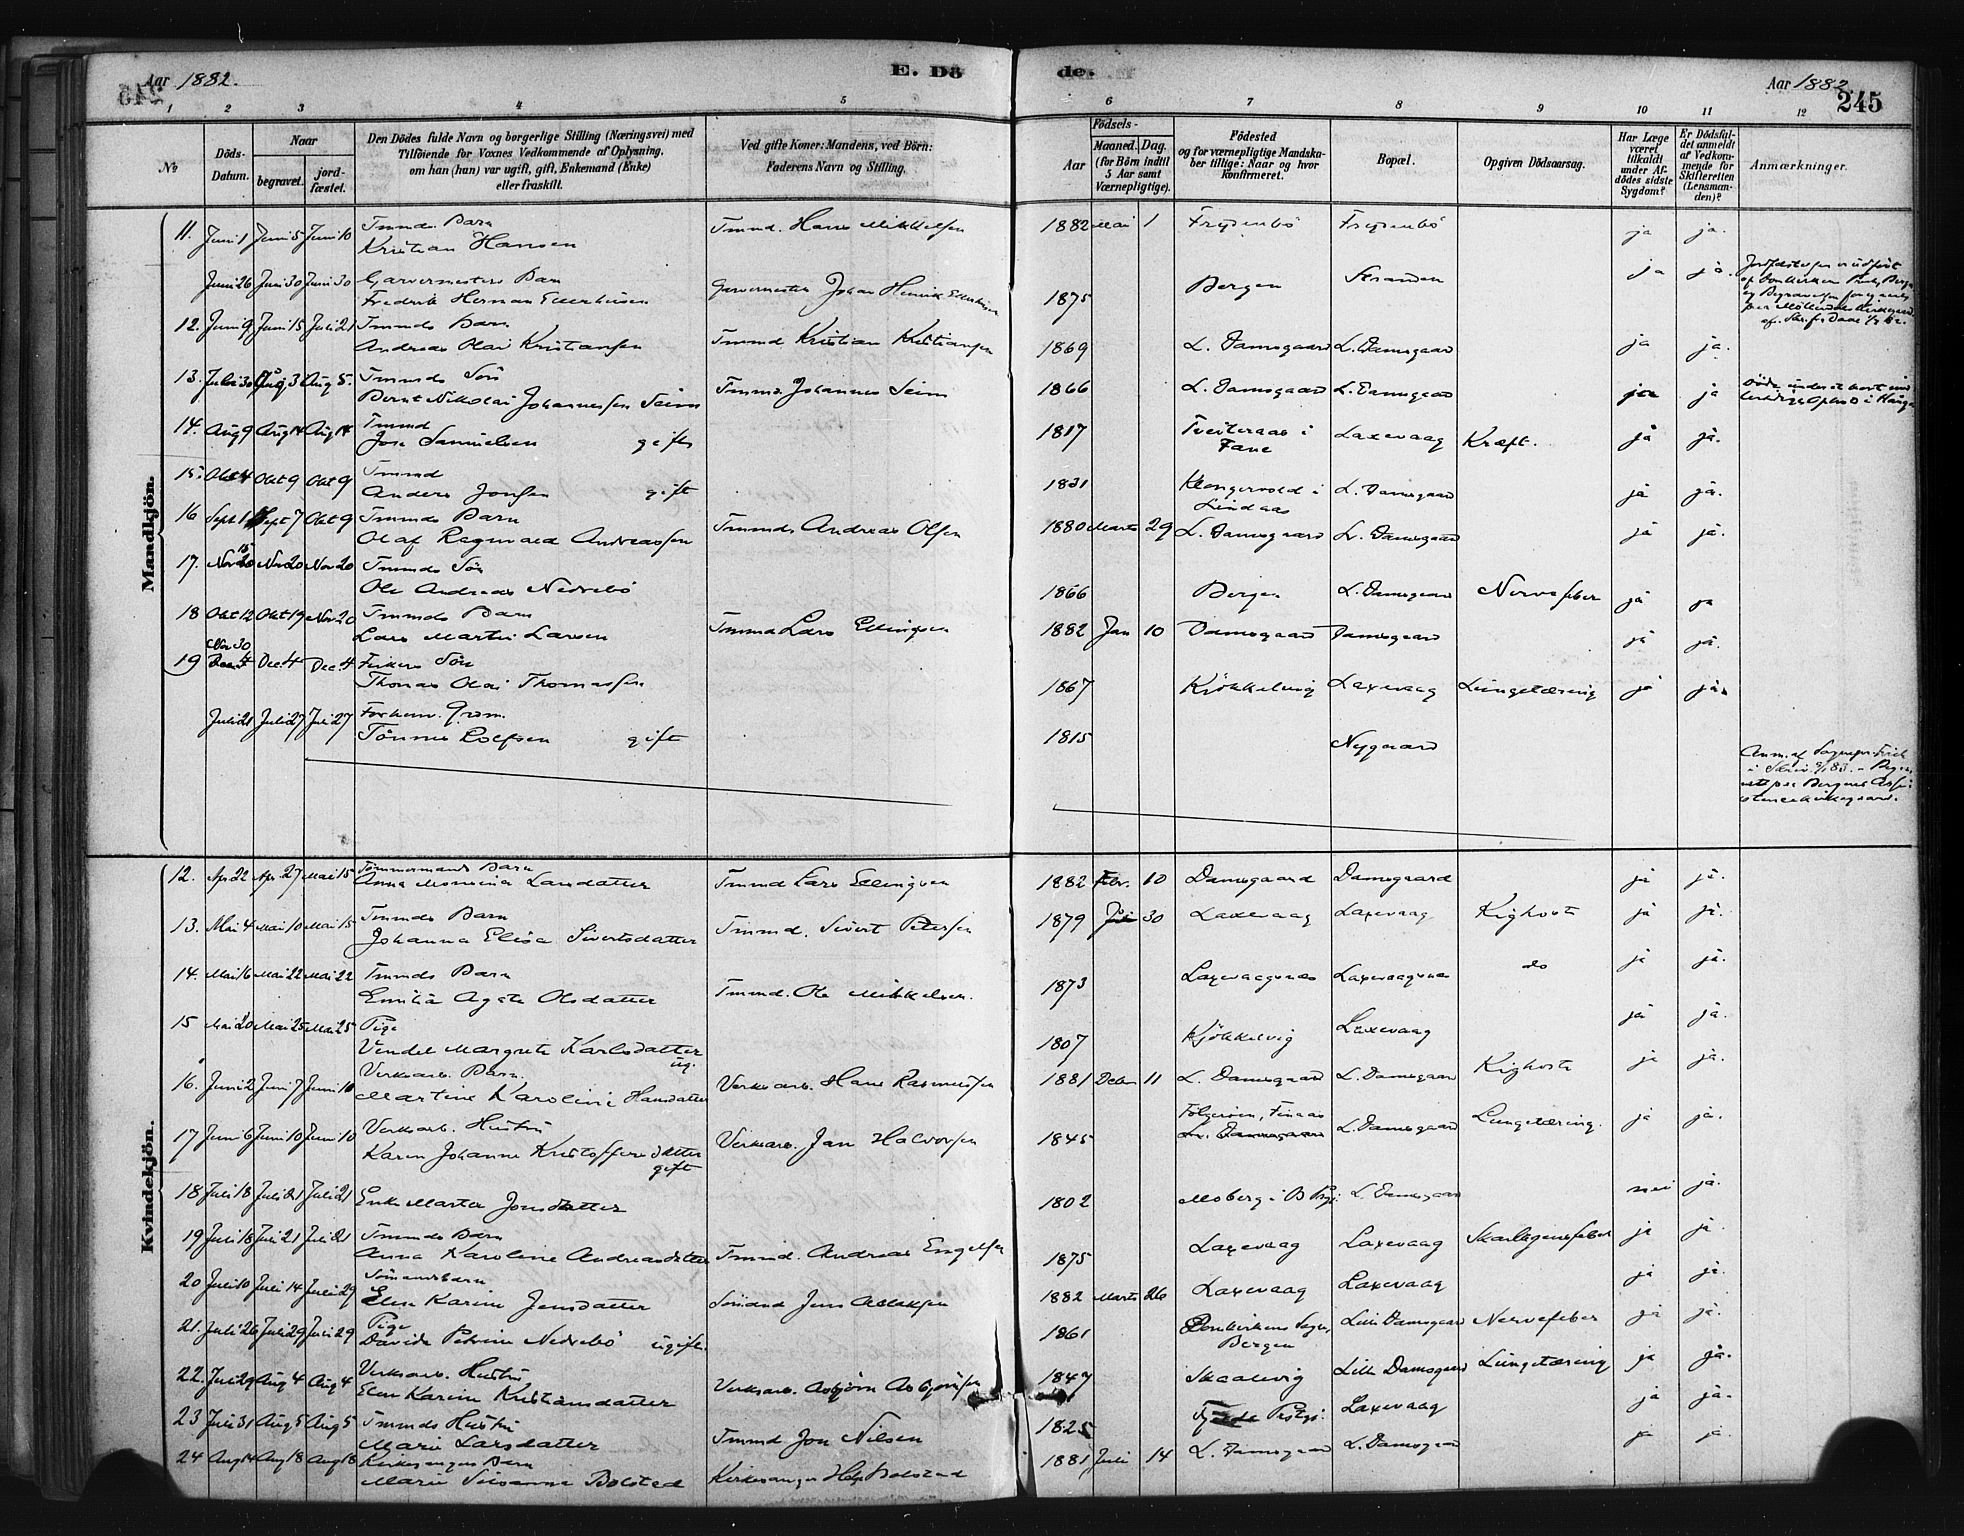 Aar 1882.
E. Dö
de.
Aar 1882.
245
1 2 3 4 5
6 7 8 9 10 11 12
No
Döds-
Datum.
Naar
begravet.
jord-
fæstet.
Den Dödes fulde Navn og borgerlige Stilling (Næringsvei) med
Tilföiende for Voxnes Vedkommende af Oplysning,
om han (hun) var ugift, gift, Enkemand (Enke)
eller fraskilt.
Ved gifte Koner: Mandens, ved Börn:
Faderens Navn og Stilling.
Födsels-
Aar
Maaned. Dag.
(for Börn indtil
5 Aar samt
Værnepligtige).
Födested
og for værnepligtige Mandska-
ber tillige: Naar og hvor
konfirmeret.
Bopæl.
Opgiven Dödsaarsag.
Har Læge
været
tilkaldt
under Af-
dödes sidste
Sygdom?
Er Dödsfal-
det anmeldt
af Vedkom-
mende for
Skifteretten
(Lensman-
den)?
Anmærkninger.
Mandkjön.
11. Juni 1 Juni 5 Juni 10 Tmmds Barn
Kristian Hansen Tmmd. Hans Mikkelsen 1882 Mai 1 Frydenbö Frydenbö ja ja.
Juni 26 Juni 30 Juni 30 Garvermesters Barn
Fredrik Herman Ellerhusen Garvermester Johan Henrik Ellerhusen 1875 Bergen Stranden ja ja.
12. Juni 9 Juni 15 Juli 21 Tmmds Barn
Andreas Olai Kristiansen Tmmd Kristian Kristiansen 1869 L. Damsgaard L. Damsgaard ja ja.
13. Juli 30 Aug 3 Aug 5. Tmmds Sön
Bernt Nikolai Johannessen Seim Tmmd. Johannes Seim 1866 L. Damsgaard L. Damsgaard ja ja
14. Aug 9 Aug 14 Aug 14 Tmmd
Jose Samuelsen gift 1817 Tveiteraas i
Fane Laxevaag Kræft. ja ja.
15. Okt 4 Okt 9 Okt 9 Tmmd
Anders Jonsen gift 1831 Klongervold i
Lindaas L. Damsgaard ja ja.
16 Sept 1 Sept 7 Okt 9 Tmmds Barn
Olaf Ragnvald Andreassen Tmmds Andreas Olsen 1880 Marts 29 L. Damsgaard L. Damsgaard ja ja.
17. Nov 15 Nov 20 Nov 20 Tmmds Sön
Ole Andreas Nedrebö 1866 Bergen L. Damsgaard Nervefeber ja ja
18 Okt 12 Okt 19 Nov 20 Tmmds Barn
Lars Martin Larsen Tmmd Lars Ellingsen 1882 Jan 10 Damsgaard Damsgaard ja ja.
Nov 30
19 Dec. 4 Dec. 4 Fiskers Sön
Thomas Olai Thomassen 1867 Kjökkelvig Laxevaag Lungetæring ja ja.
Juli 21 Juli 27 Juli 27 Forhenv.
Tönnes Rolfsen gift 1815 Nygaard
Kvindekjön.
12. Apr. 22 Apr. 27 Mai 15 Tömmermands Barn
Anna Monsina Larsdatter Tmmd Lars Ellingsen 1882 Febr. 10 Damsgaard Damsgaard ja ja.
13. Mai 4 Mai 10 Mai 15 Tmmds Barn
Johanna Elisa Sivertsdatter Tmmd. Sivert Petersen 1879 30 Laxevaag Laxevaag Kighoste ja ja.
14. Mai 16 Mai 22 Mai 22 Tmmds Barn
Emilia Agate Olsdatter Tmmd. Ole Mikkelsen. 1873 Laxevaagnæs Laxevaagnæs do ja ja.
15 Mai 20 Mai 25 Mai 25 Pige
Vendel Margrete Karlsdatter
ug. 1807 Kjökkelvig Laxevaag ja ja.
16. Juni 2 Juni 7 Juni 10 Verksarb. Barn.
Martine Karoline Hansdatter Verksarb. Hans Rasmussen 1881 Debr 11 L. Damsgaard L. Damsgaard Kighoste ja ja.
17 Juni 6 Juni 10 Juni 10 Verksarb. Hustru
Karen Johanne Kristoffersdatter
gift Verksarb. Jan Halvorsen 1845 Folgeröen, Finaas
L. Damsgaard L. Damsgaard Lungetæring. ja ja.
18 Juli 18 Juli 21 Juli 21 Enke Marta Jonsdatter 1802 Moberg i Præstgj. L. Damsgaard nei ja.
19 Juli 18 Juli 21 Juli 21 Tmmds Barn
Anna Karoline Andreasdatter Tmmd. Andreas Engelsen 1875 Laxevaag Laxevaag Skarlagensfeber ja ja
20 Juli 10 Juli 14 Juli 29 Sömandsbarn
Elen Karine Jensdatter Sömand Jens 1882 Marts 26 Laxevaag Laxevaag ja ja.
21. Juli 26 Juli 29 Juli 29 Pige
Davida Petrine Nedrebö ugift. 1861 Domkirkens Sogn,
Bergen Lille Damsgaard Nervefeber ja ja.
22. Juli 29 Aug 4 Aug 4 Verksarb. Hustru
Elen Karine Kristiansdatter Verksarb. Asbjörn Asbjörnsen 1847 Skaalevig Lille Damsgaard Lungetæring ja ja.
23 Juli 31 Aug 5 Aug 5 Tmmds Hustru
Marie Larsdatter Tmmd Jon Nilsen 1825 Laxevaag ja ja.
24 Aug 14 Aug 18 Aug 18 Kirkesangers Barn
Marie Susanna Bolstad Kirkesanger Bolstad 1881 Juli 14 L. Damsgaard L. Damsgaard ja ja.